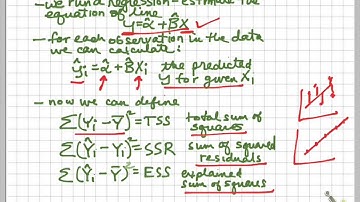 - we run a regression - estimate the
equation of line
Y = α̂ + β̂X
- for each observation in the data
we can calculate:
ŷi = α̂ + β̂Xi the predicted
Y for given Xi
- now we can define
Σ(Yi - Ȳ)² = TSS total sum of
squares
Σ(Ŷi - Yi)² = SSR sum of squared
residuals
Σ(Ŷi - Ȳ)² = ESS explained
sum of squares